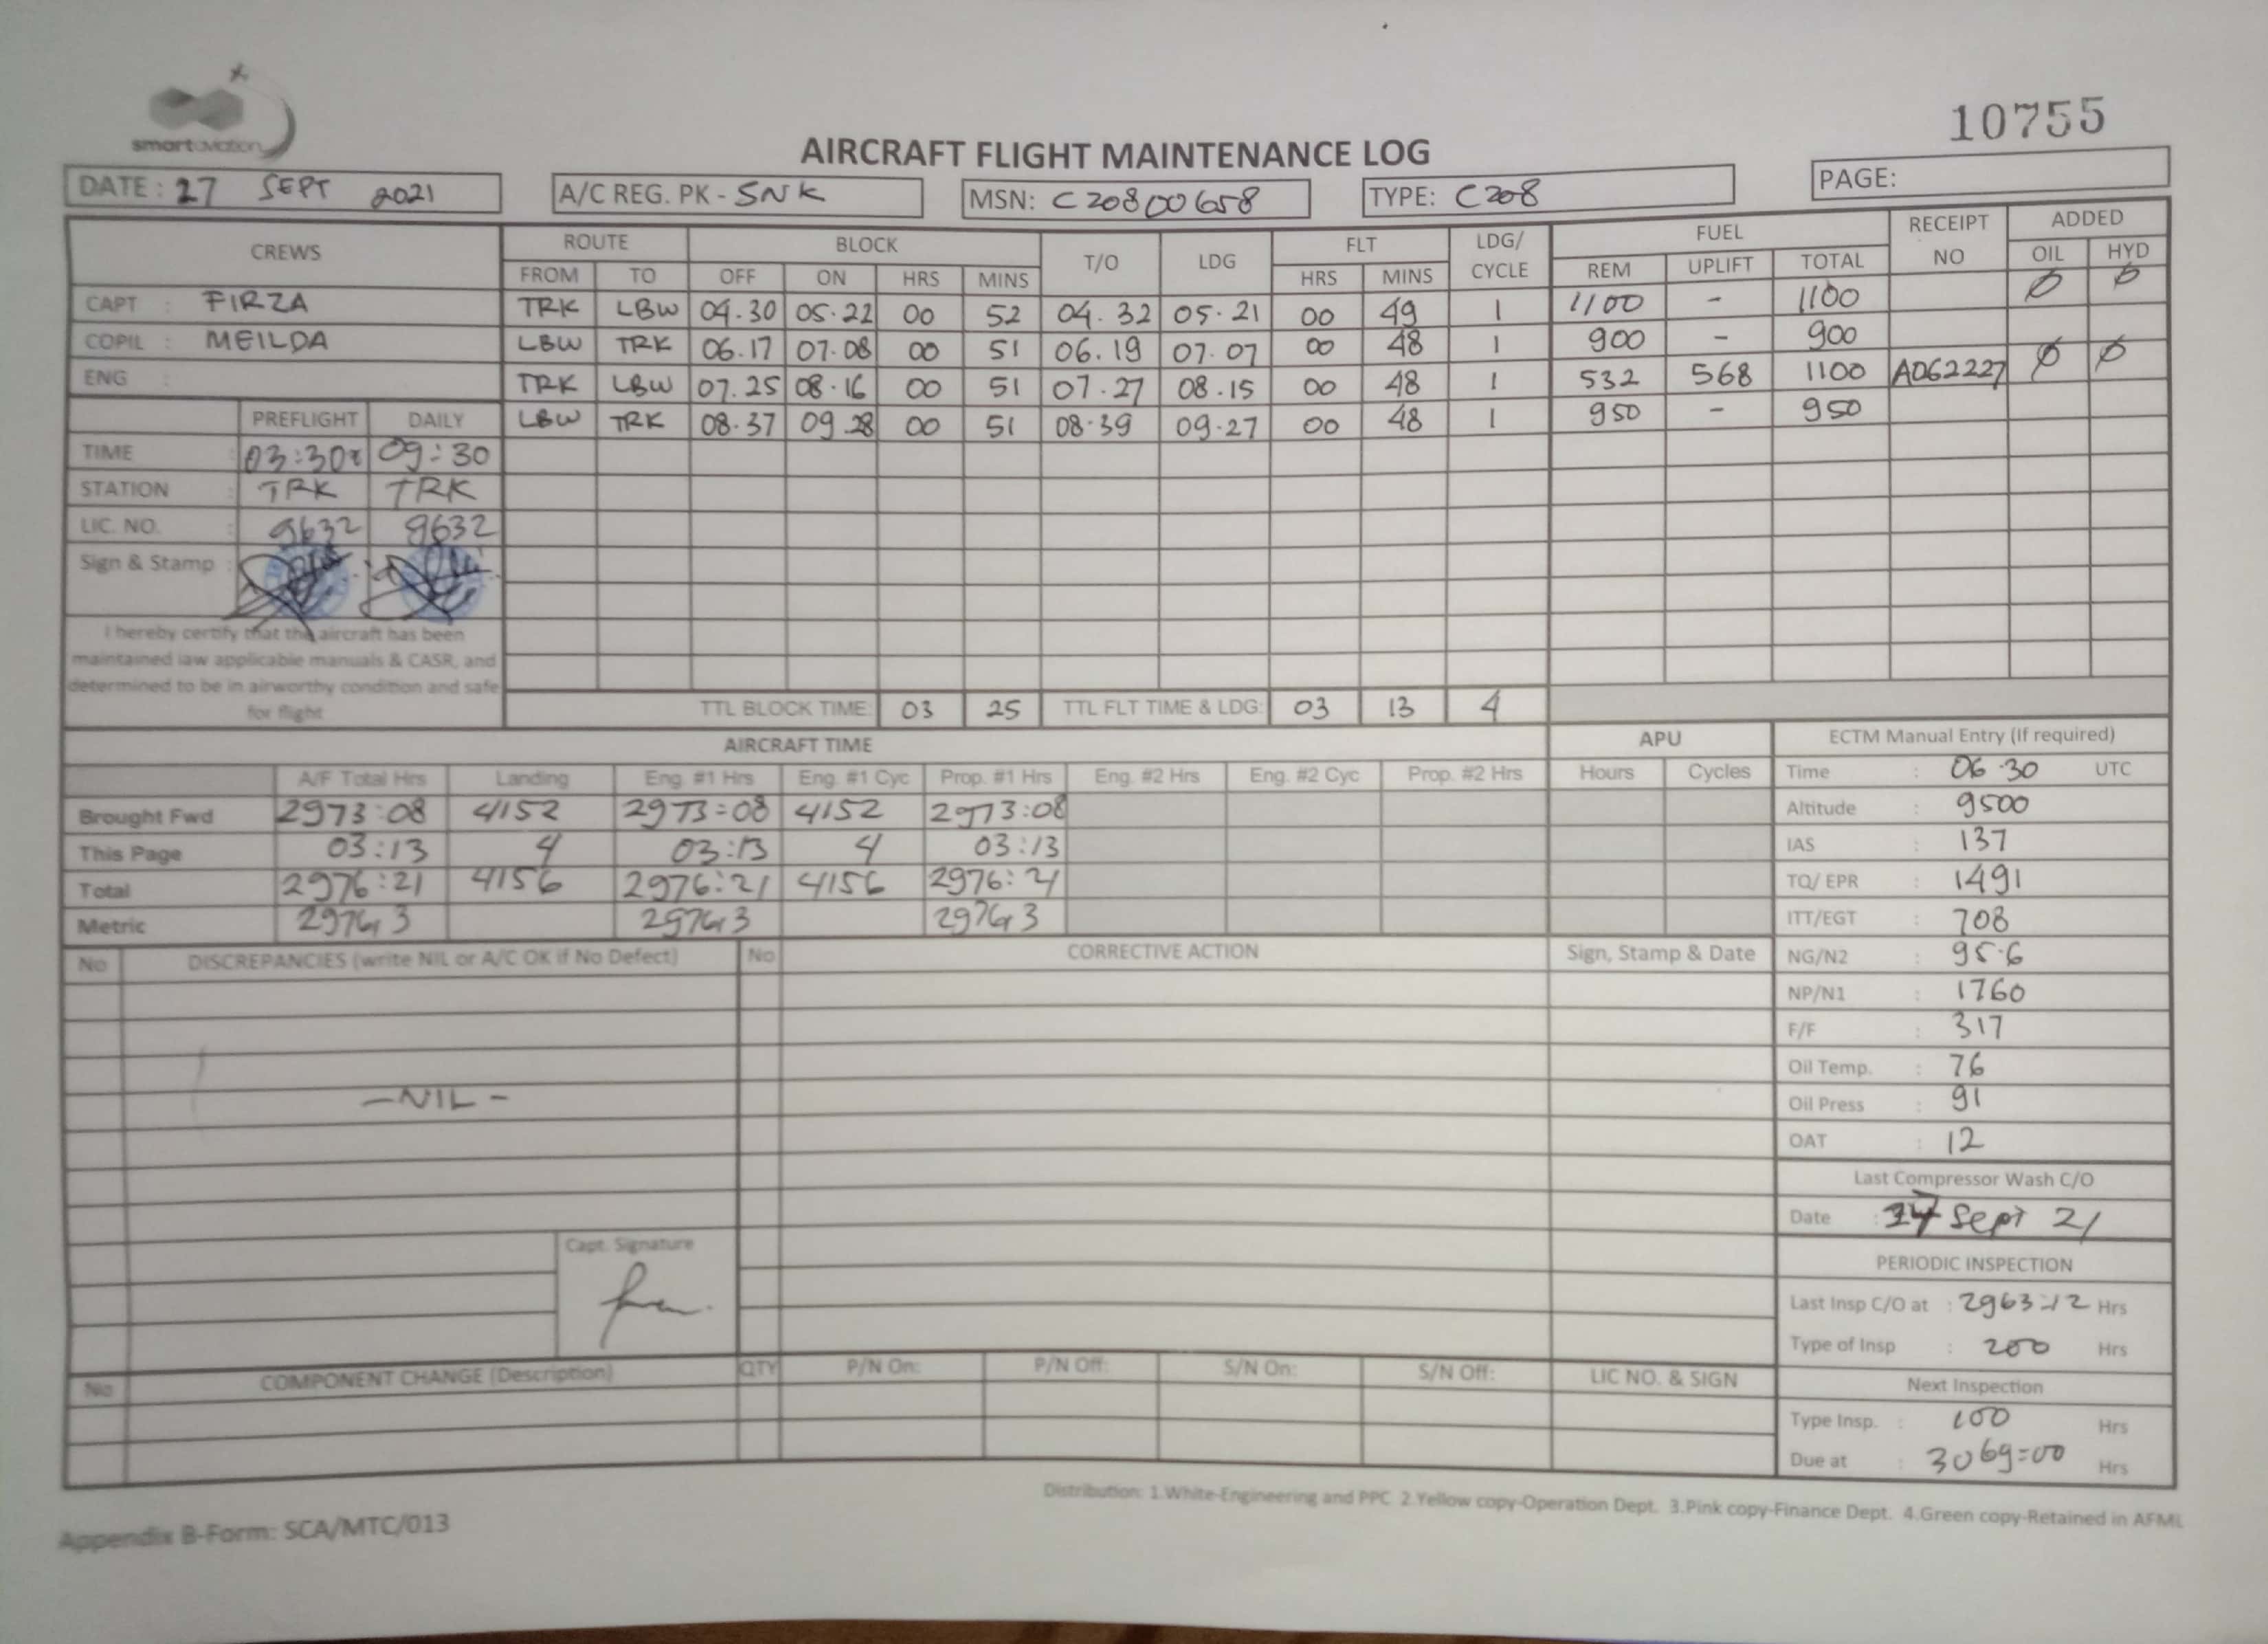 smart aviation
10755
AIRCRAFT FLIGHT MAINTENANCE LOG
DATE : 27 SEPT 2021 A/C REG. PK - SNK MSN: C20800658 TYPE: C208 PAGE:
CREWS ROUTE BLOCK T/O LDG FLT LDG/ CYCLE FUEL RECEIPT NO ADDED
FROM TO OFF ON HRS MINS HRS MINS REM UPLIFT TOTAL OIL HYD
CAPT : FIRZA TRK LBW 04.30 05.22 00 52 04.32 05.21 00 49 1 1100 - 1100 Ø Ø
COPIL : MEILDA LBW TRK 06.17 07.08 00 51 06.19 07.07 00 48 1 900 - 900
ENG : TRK LBW 07.25 08.16 00 51 07.27 08.15 00 48 1 532 568 1100 A062227 Ø Ø
PREFLIGHT DAILY LBW TRK 08.37 09.28 00 51 08.39 09.27 00 48 1 950 - 950
TIME : 03:30 09:30
STATION : TRK TRK
LIC. NO. : 9632 9632
Sign & Stamp :
I hereby certify that the aircraft has been
maintained iaw applicable manuals & CASR, and
determined to be in airworthy condition and safe
for flight
TTL BLOCK TIME: 03 25 TTL FLT TIME & LDG: 03 13 4
AIRCRAFT TIME APU ECTM Manual Entry (If required)
A/F Total Hrs Landing Eng. #1 Hrs Eng. #1 Cyc Prop. #1 Hrs Eng. #2 Hrs Eng. #2 Cyc Prop. #2 Hrs Hours Cycles Time : 06.30 UTC
Brought Fwd 2973:08 4152 2973:08 4152 2973:08 Altitude : 9500
This Page 03:13 4 03:13 4 03:13 IAS : 137
Total 2976:21 4156 2976:21 4156 2976:21 TQ/ EPR : 1491
Metric 2976,3 2976,3 2976,3 ITT/EGT : 708
No DISCREPANCIES (write NIL or A/C OK if No Defect) No CORRECTIVE ACTION Sign, Stamp & Date NG/N2 : 95.6
NP/N1 : 1760
F/F : 317
Oil Temp. : 76
- NIL - Oil Press : 91
OAT : 12
Last Compressor Wash C/O
Date : Sept 21
Capt. Signature
PERIODIC INSPECTION
Last Insp C/O at : 2963:12 Hrs
Type of Insp : 200 Hrs
No COMPONENT CHANGE (Description) QTY P/N On: P/N Off: S/N On: S/N Off: LIC NO. & SIGN Next Inspection
Type Insp. : 100 Hrs
Due at : 3069:00 Hrs
Distribution: 1.White-Engineering and PPC 2.Yellow copy-Operation Dept. 3.Pink copy-Finance Dept. 4.Green copy-Retained in AFML
Appendix B-Form: SCA/MTC/013